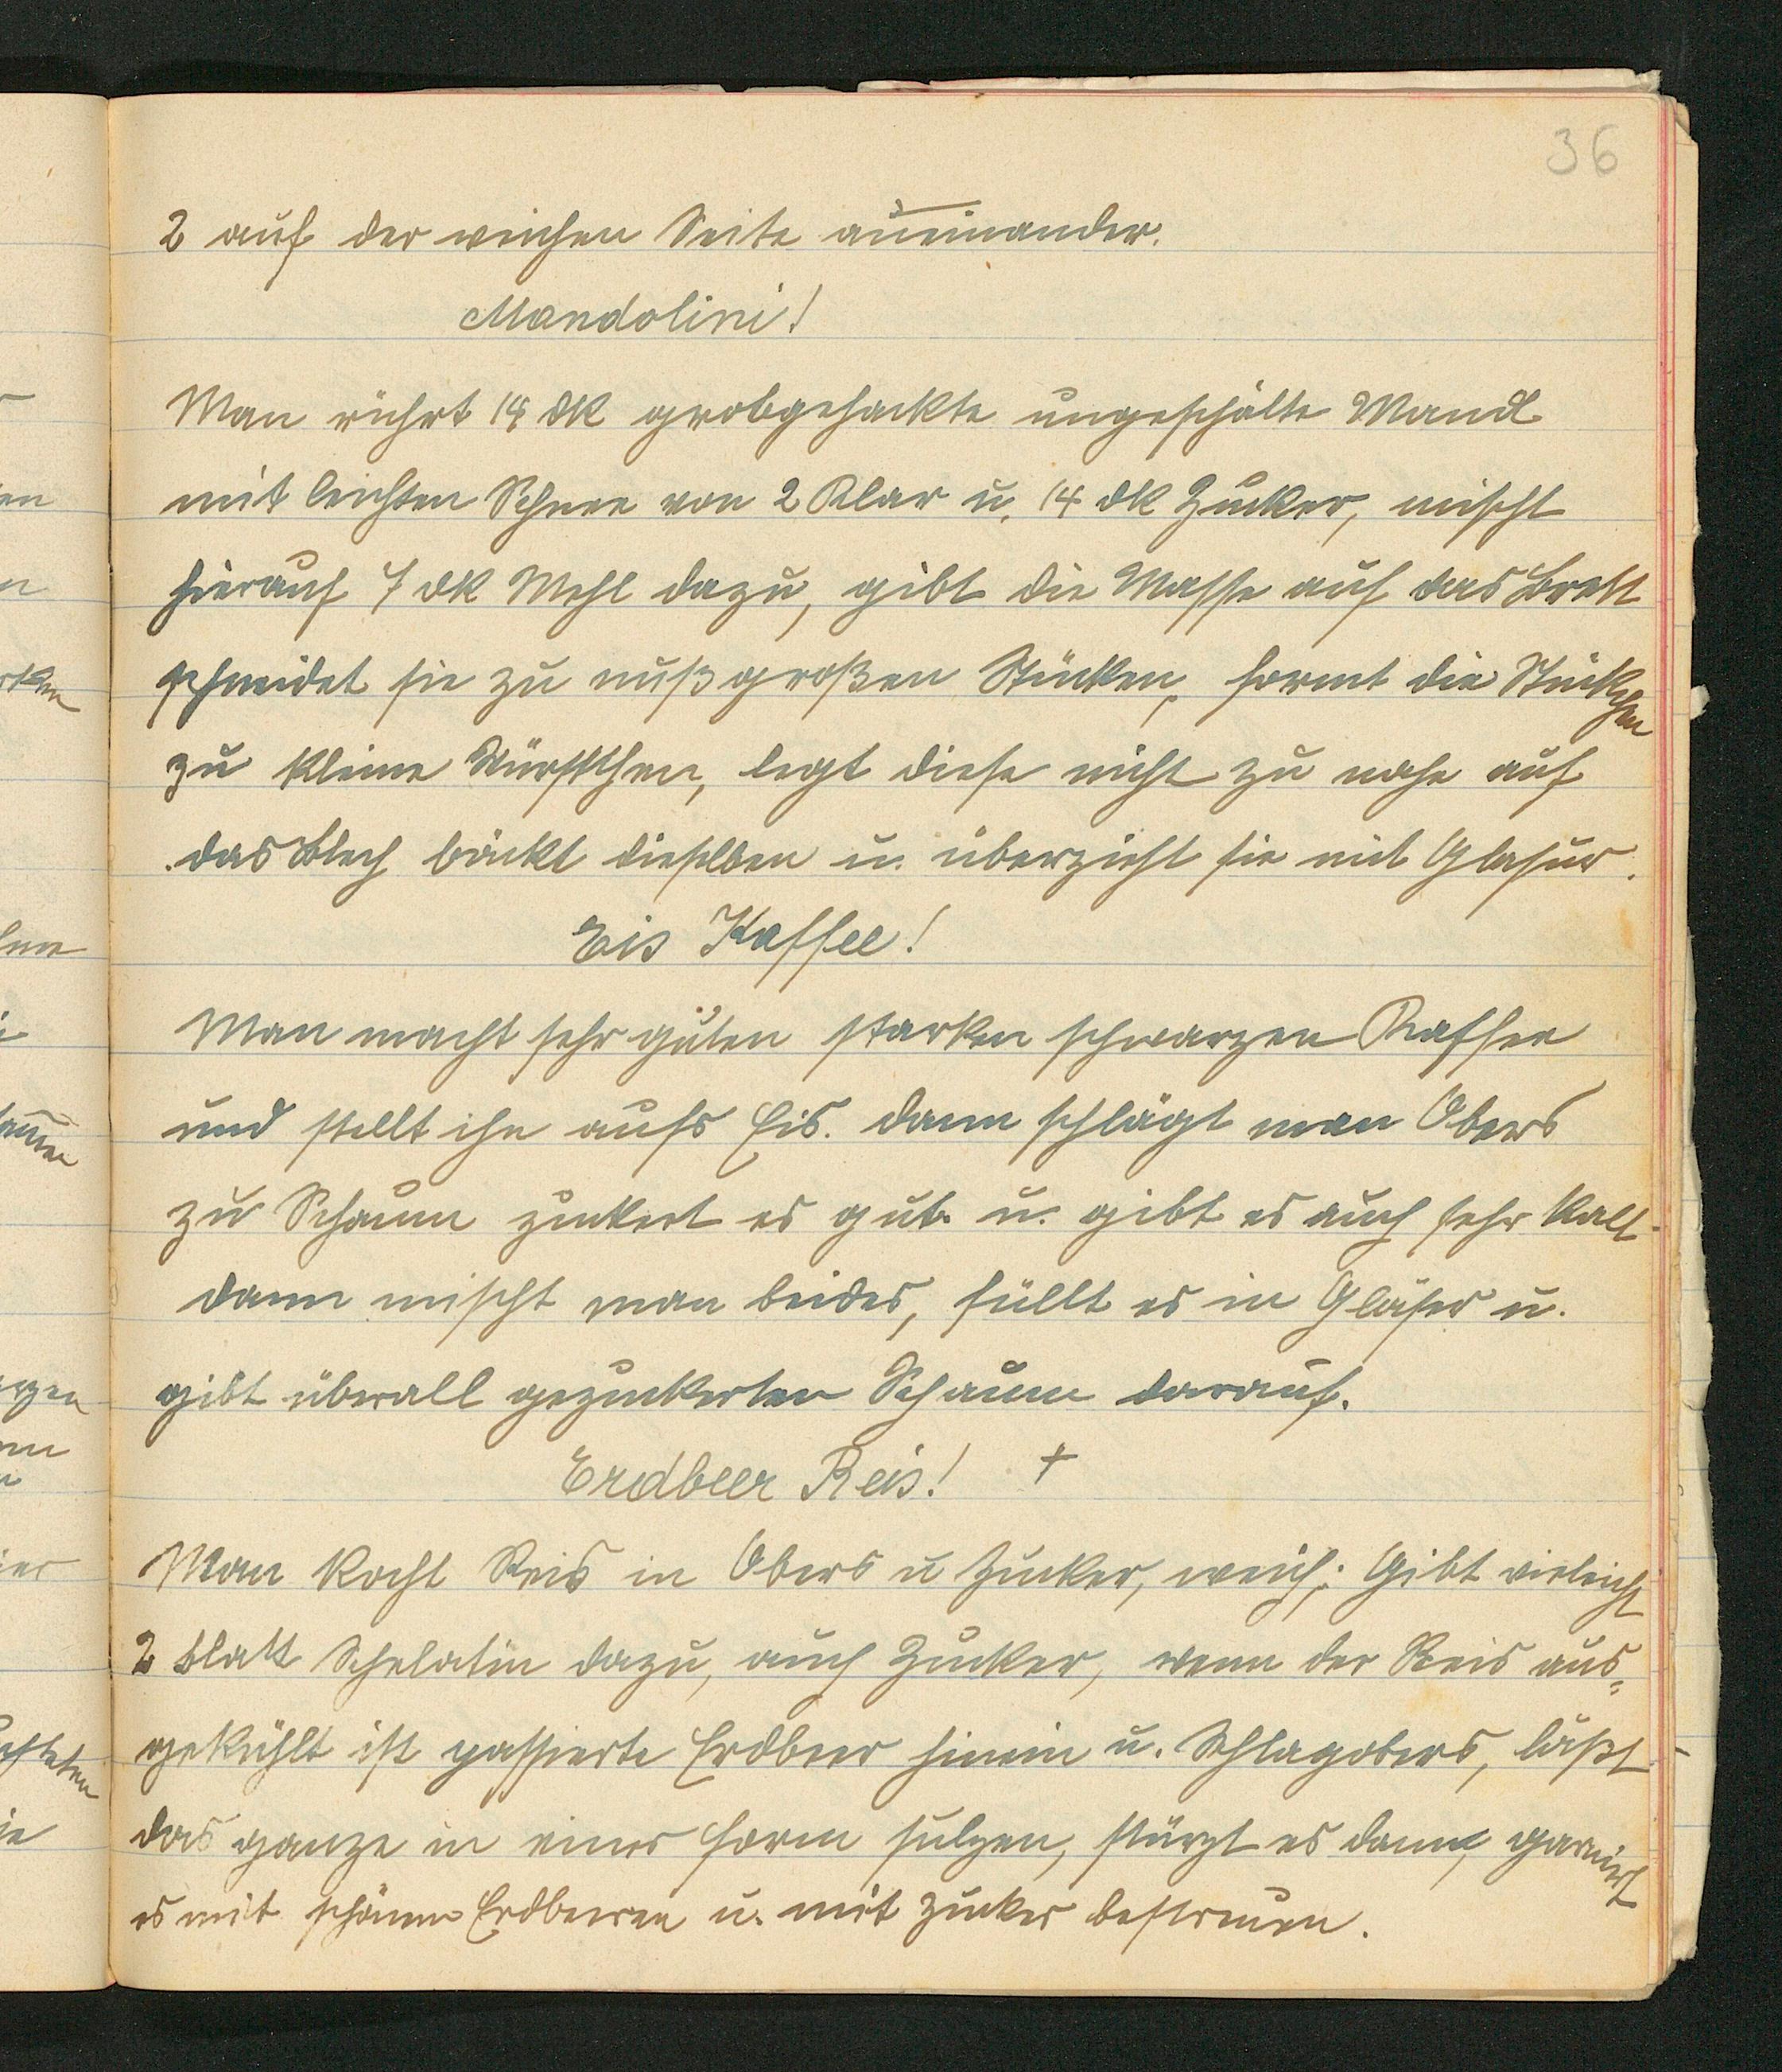 36
2 auf der weichen Seite aneinander.
Mandolini!
Man rührt 14 dk grobgehackte ungeschälte Mandl
mit leichten Schnee von 2 Klar u. 14 dk Zucker, mischt
hierauf 7 dk Mehl dazu, gibt die Masse auf das Brett
schneidet sie zu nußgroßen Stücken, formt die Stückchen
zu kleine Würstchen, legt diese nicht zu nahe auf
das Blech bäckt dieselben u. überzieht sie mit Glasur.
Eis Kaffee!
Man macht sehr guten starken schwarzen Kaffee
und stellt ihn aufs Eis. dann schlägt man Obers
zu Schaum zuckert es gut u. gibt es auch sehr kalt
dann mischt man beides, füllt es in Gläser u.
gibt überall gezuckerten Schaum darauf.
Erdbeer Reis! +
Man kocht Reis in Obers u Zucker, weich; Gibt vieleicht
2 Blatt Schelatin dazu, auch Zucker, wenn der Reis aus=
gekühlt ist passierte Erdbeer hinein u. Schlagobers, läßt
das ganze in einer Form sulzen, stürzt es dann, garniert
es mit schönen Erdbeeren u. mit Zucker bestreuen.